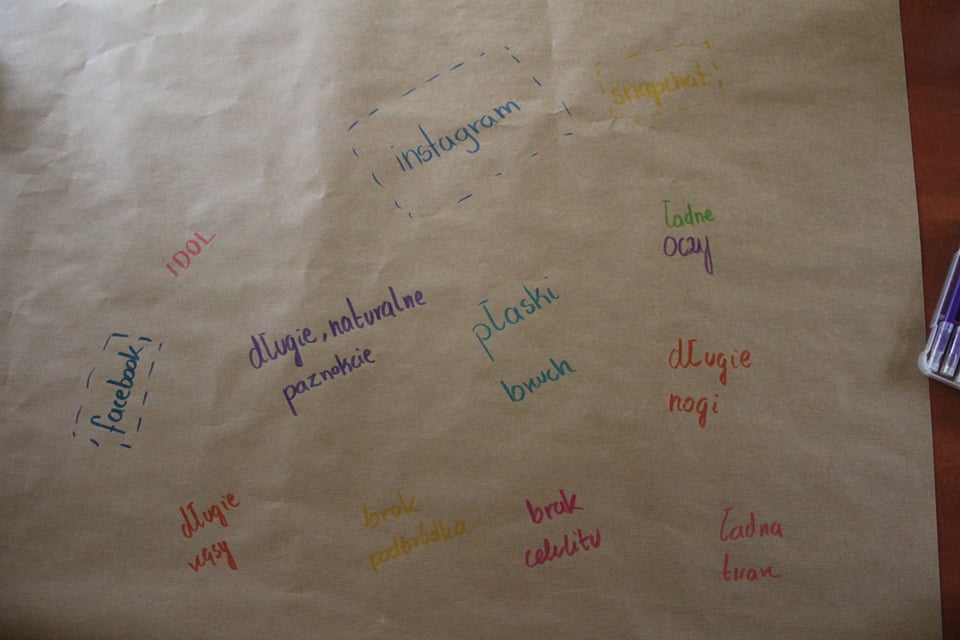 instagram
snapchat
ładne
oczy
IDOL
długie, naturalne
paznokcie
płaski
brzuch
facebook
długie
nogi
długie
rzęsy
brak
podbródka
brak
celulitu
ładna
twarz